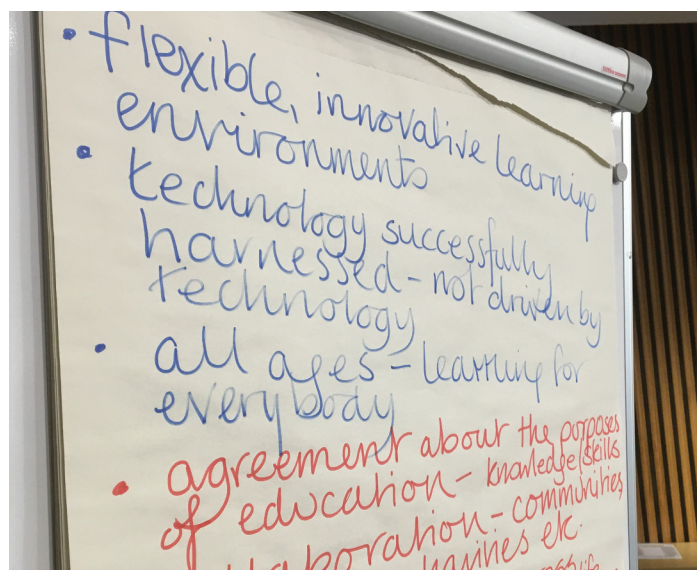 • flexible, innovative learning
environments
• technology successfully
harnessed - not driven by
technology
• all ages - learning for
everybody
• agreement about the purposes
of education - knowledge/skills
- communities,
etc.